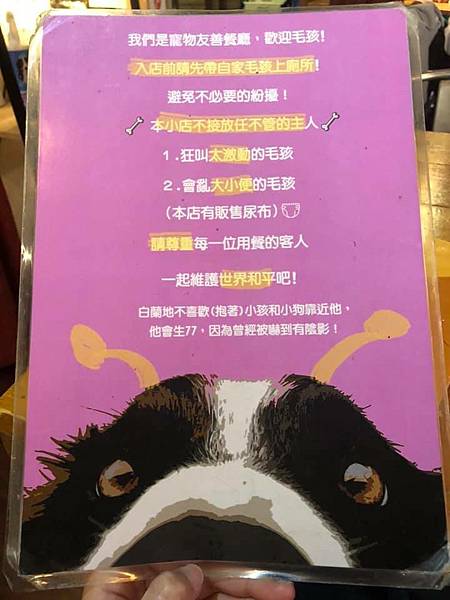 我們是寵物友善餐廳，歡迎毛孩!
入店前請先帶自家毛孩上廁所!
避免不必要的紛擾！
本小店不接放任不管的主人
1.狂叫太激動的毛孩
2.會亂大小便的毛孩
(本店有販售尿布)
請尊重每一位用餐的客人
一起維護世界和平吧!
白蘭地不喜歡(抱著)小孩和小狗靠近他，
他會生77，因為曾經被嚇到有陰影！